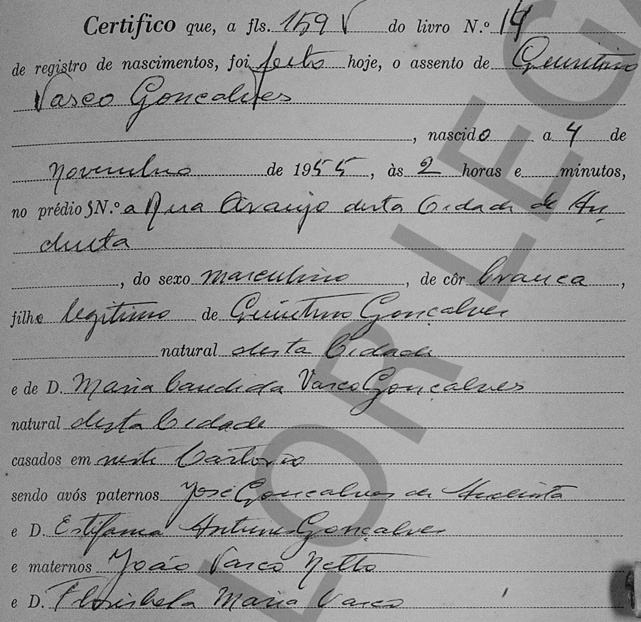 Certifico que, a fls. 159 V do livro N.º 14
de registro de nascimentos, foi feito hoje, o assento de Quintino
Vasco Goncalves
, nascido a 4 de
Novembro de 1955, às 2 horas e minutos,
no prédio SN.º a Rua Araujo desta Cidade de An
dueta
, do sexo masculino, de côr branca,
filho legitimo de Quintino Gonçalves
natural desta Cidade
e de D. Maria Candida Vasco Gonçalves
natural desta Cidade
casados em neste Cartorio
sendo avós paternos José Goncalves de
e D. Estifania Antunes Gonçalves
e maternos João Vasco Netto
e D. Florisbela Maria Vasco
LOR LEGA